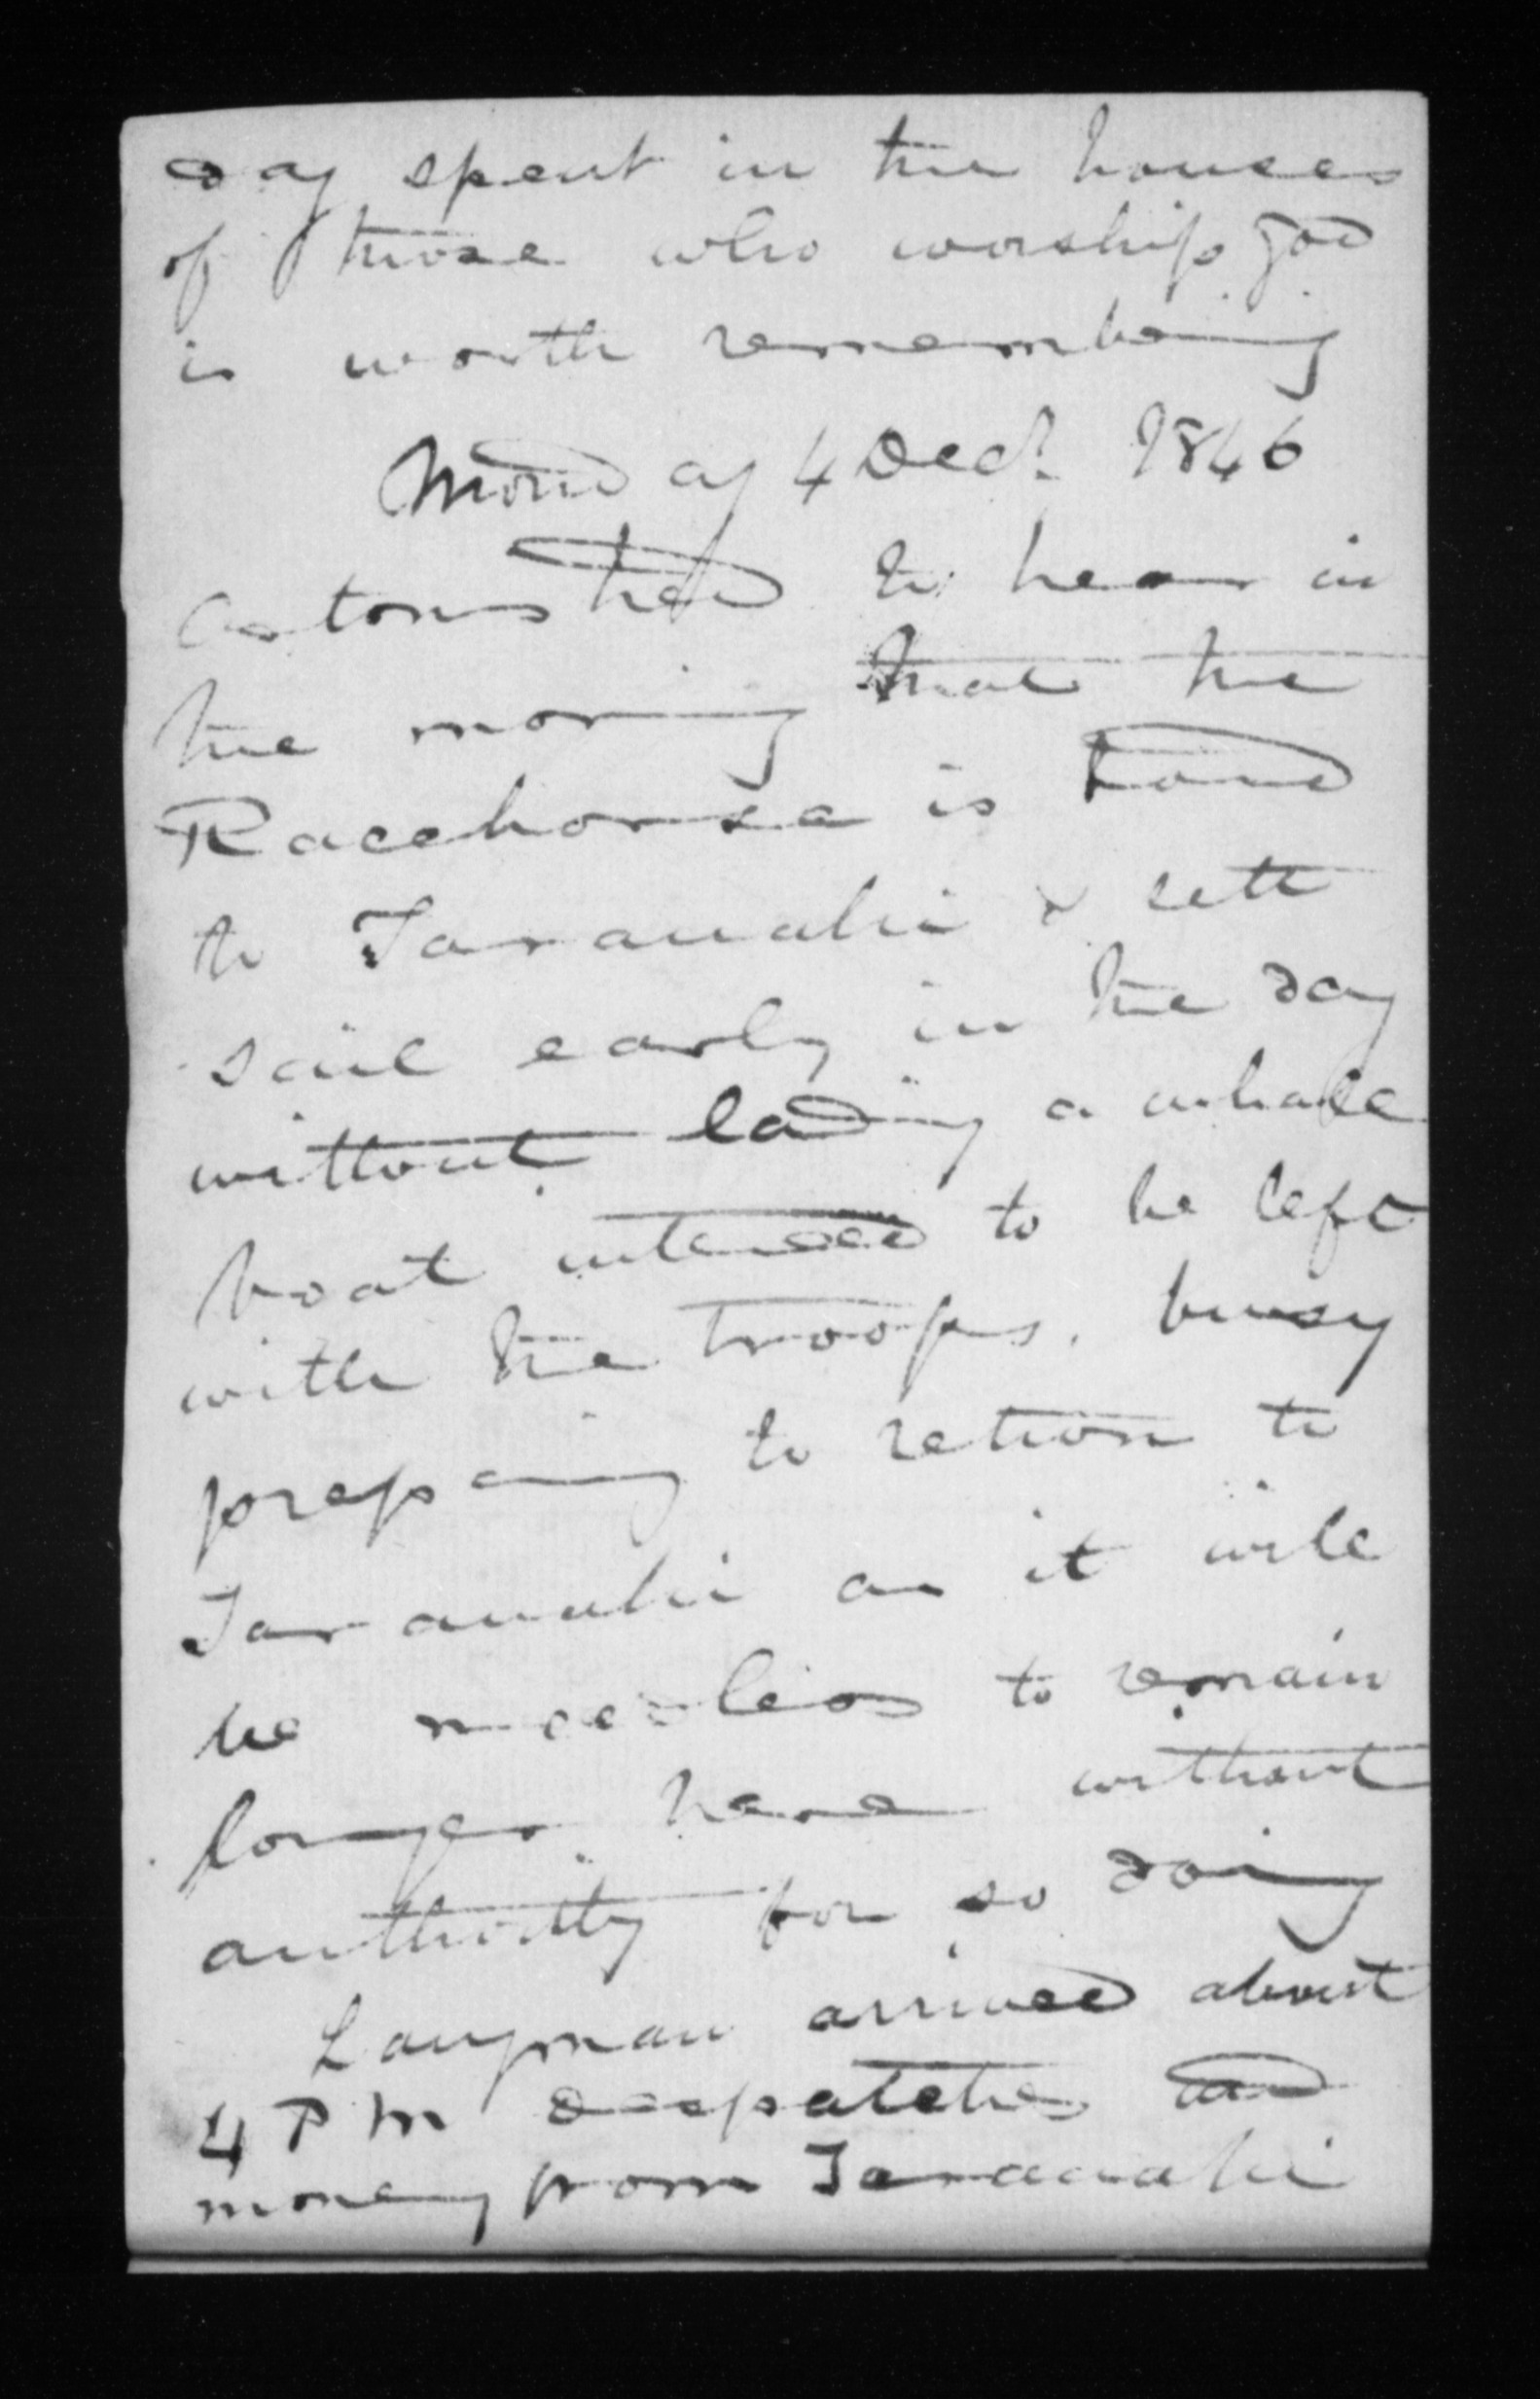 day spent in the houses
of those who worship God
is worth remembering
Monday 4 Decr. 1846
Astonished to hear in
the morning that the
Racehorse is bound
to Taranaki & sett
sail early in the day
without landing a whale
boat intended to be left
with the troops. busy
preparing to return to
Taranaki as it will
be needless to remain
longer here without
authority for so doing
Langman arrived about
4 PM despatches and
money from Taranaki